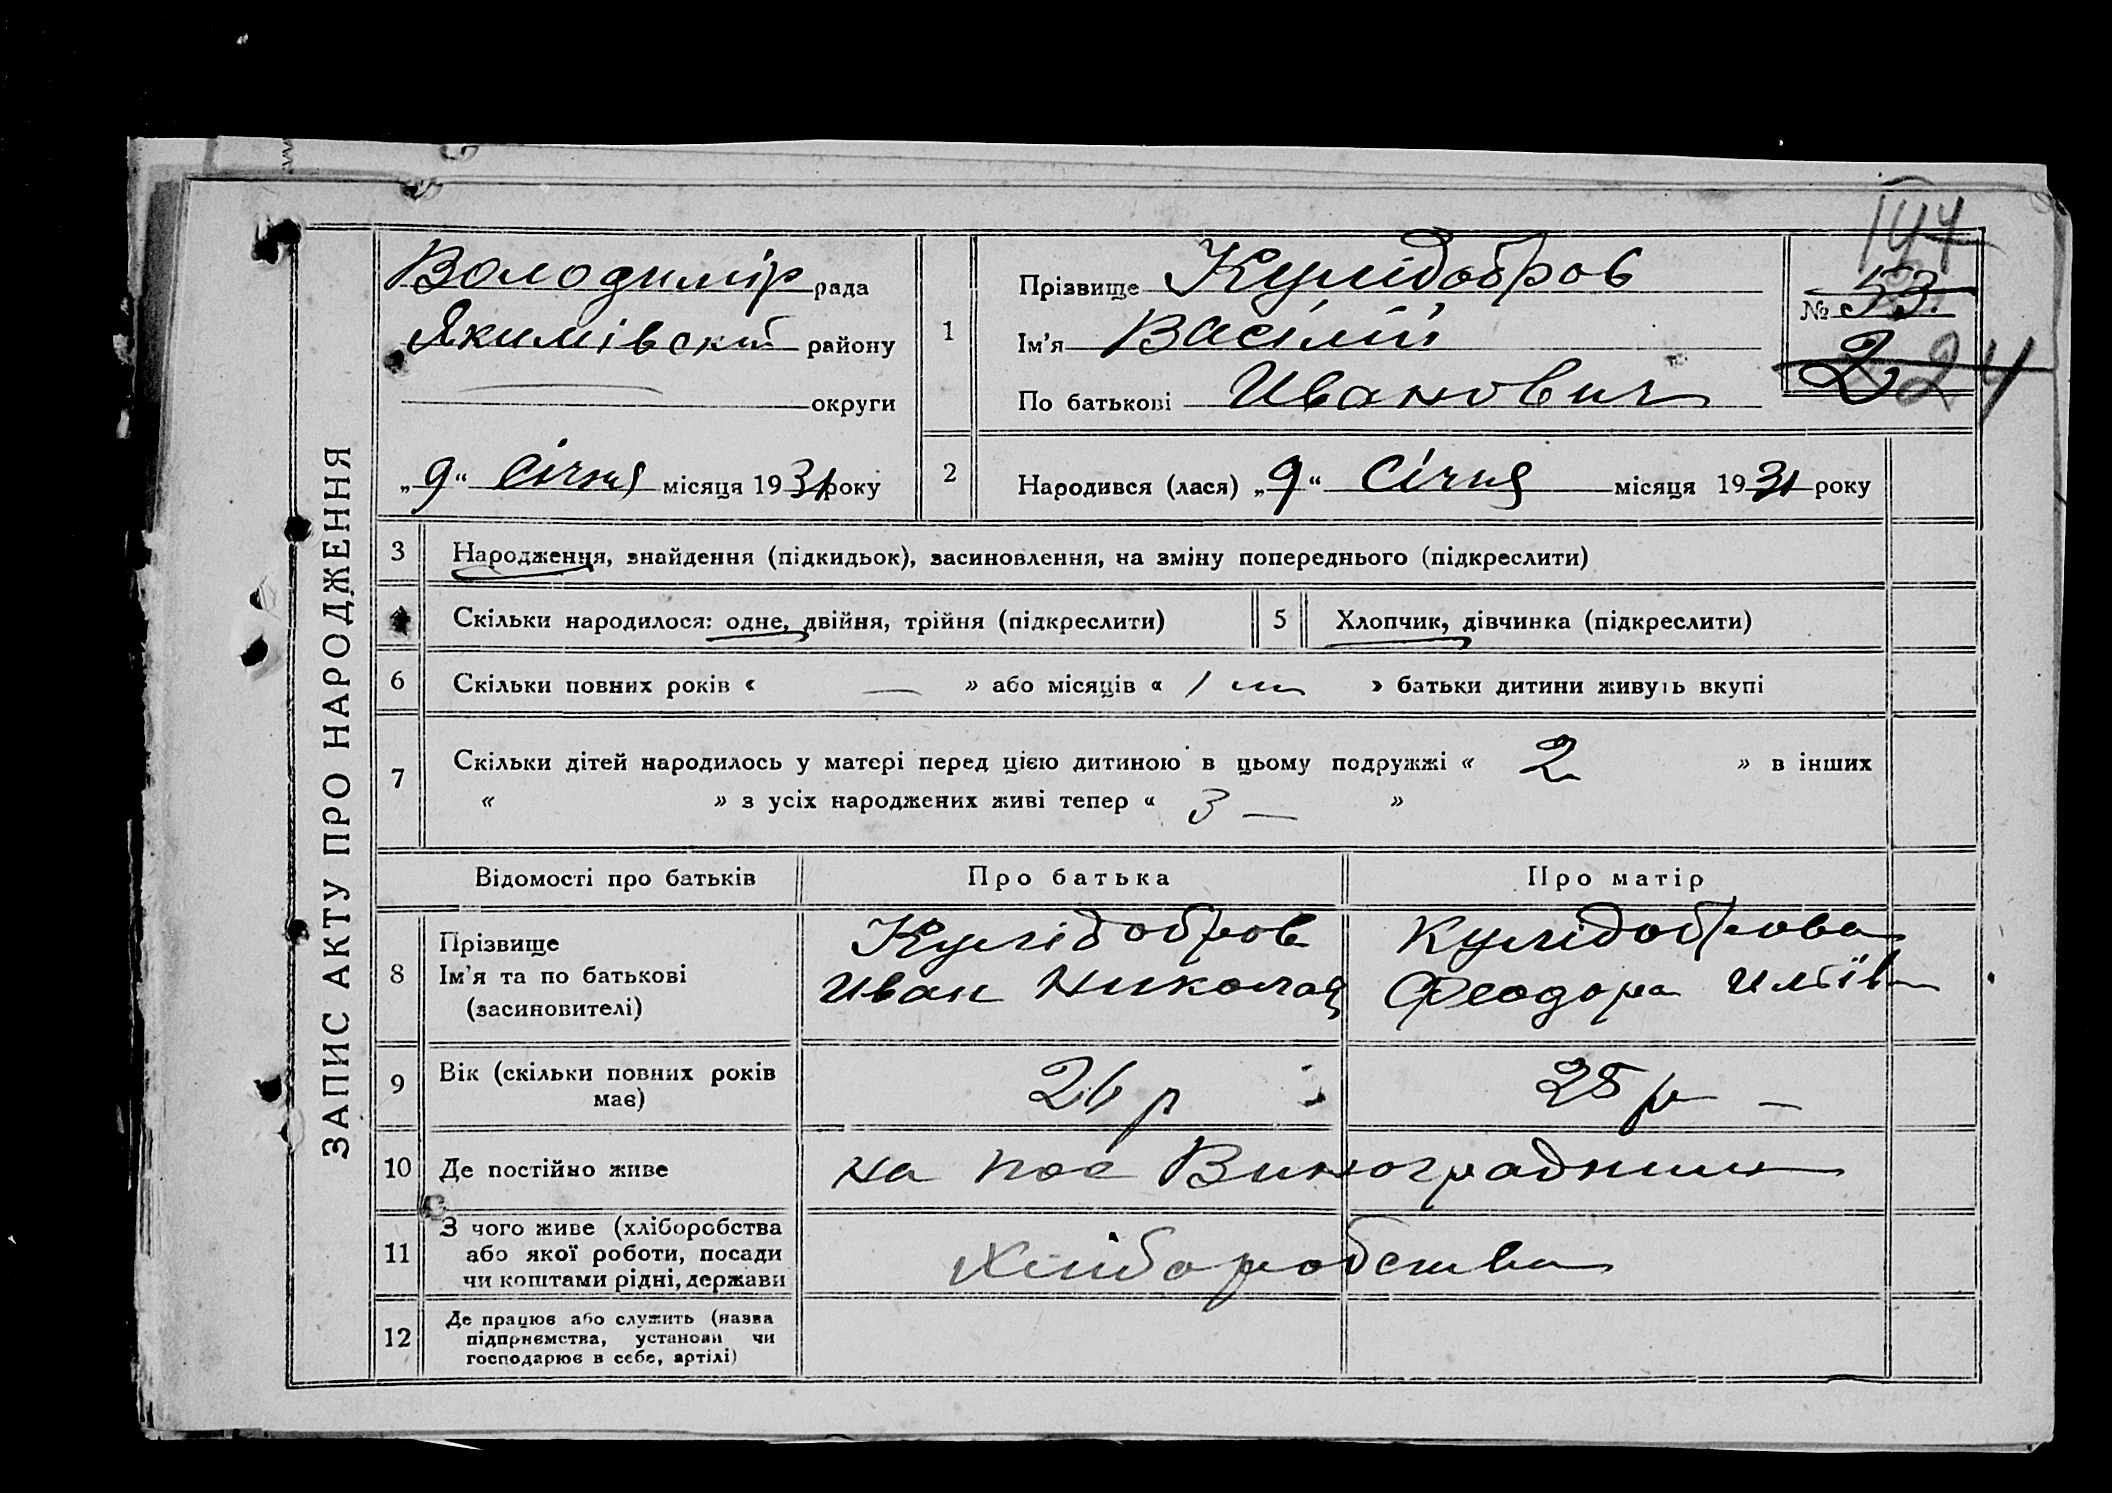 ЗАПИС АКТУ ПРО НАРОДЖЕННЯ
Володимір рада
Якимівский району
округи
„9“ Січня місяця 1931 року
1
Прізвище Кулідобров
Ім’я Васілій
По батькові Иванович
147
№ 53.
2
224
2
Народився (лася) „9“ Січня місяця 1931 року
3 Народження, знайдення (підкидьок), засиновлення, на зміну попереднього (підкреслити)
4 Скільки народилося: одне, двійня, трійня (підкреслити) 5 Хлопчик, дівчинка (підкреслити)
6 Скільки повних років « — » або місяців « 1 м » батьки дитини живуть вкупі
7 Скільки дітей народилось у матері перед цією дитиною в цьому подружжі « 2 » в інших
« » з усіх народжених живі тепер « 3 — »
Відомості про батьків Про батька Про матір
8 Прізвище
Ім’я та по батькові
(засиновителі)
Кулідобров
Иван Николай
Кулідоброва
Феодора Иллів
9 Вік (скільки повних років має) 26 р 25 р —
10 Де постійно живе на пос Виноградним
11 З чого живе (хліборобства
або якої роботи, посади
чи коштами рідні, держави
Хліборобства
12 Де працює або служить (назва
підприємства, установи чи
господарює в себе, артілі)